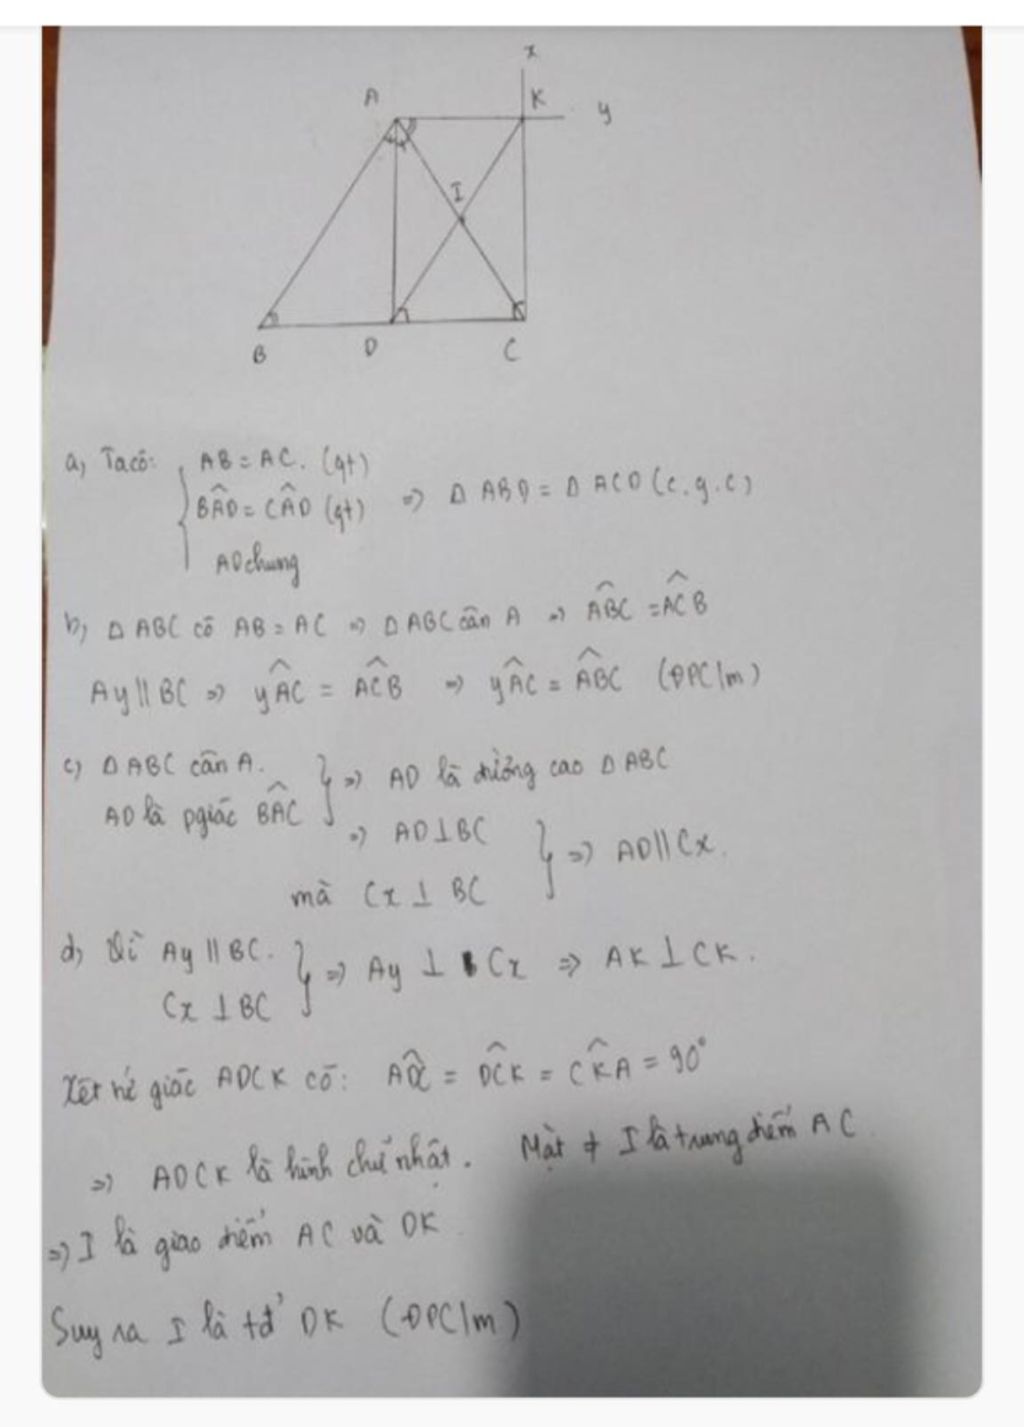 x
A
K
y
I
B
D
C
a, Ta có: AB = AC. (gt)
BÂD = CÂD (gt) => Δ ABD = Δ ACD (c.g.c)
AD chung
b, Δ ABC có AB = AC => Δ ABC cân A => ABC^ = ACB^
Ay // BC => yAC^ = ACB^ => yAC^ = ABC^ (ĐPC/m)
c) Δ ABC cân A.
AD là pgiác BAC^ } => AD là đường cao Δ ABC
=> AD ⊥ BC
mà Cx ⊥ BC } => AD // Cx.
d, Vì Ay // BC.
Cx ⊥ BC } => Ay ⊥ Cx => AK ⊥ CK.
Xét tứ giác ADCK có: ADC^ = DCK^ = CKA^ = 90°
=> ADCK là hình chữ nhật. Mặt ≠ I là trung điểm AC
=> I là giao điểm AC và DK
Suy ra I là tđ' DK (ĐPC/m)